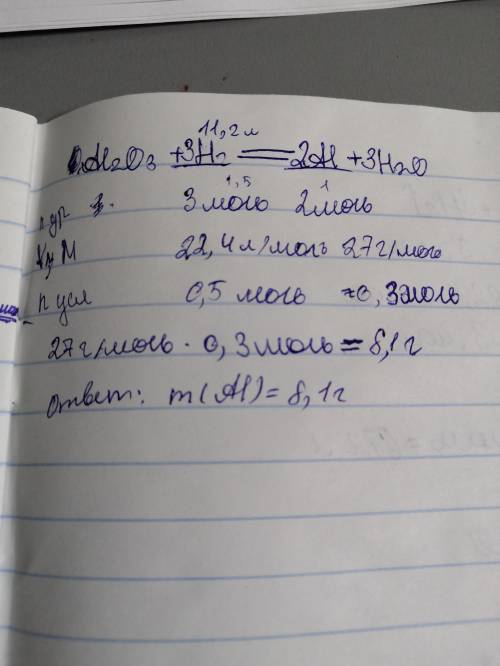 11,2 л
Al2O3 + 3H2 = 2Al + 3H2O
1,5 1
n ур. 3 моль 2 моль
Vm M 22,4 л/моль 27 г/моль
n усл 0,5 моль ≈0,3 моль
27 г/моль · 0,3 моль = 8,1 г
Ответ: m(Al) = 8,1 г